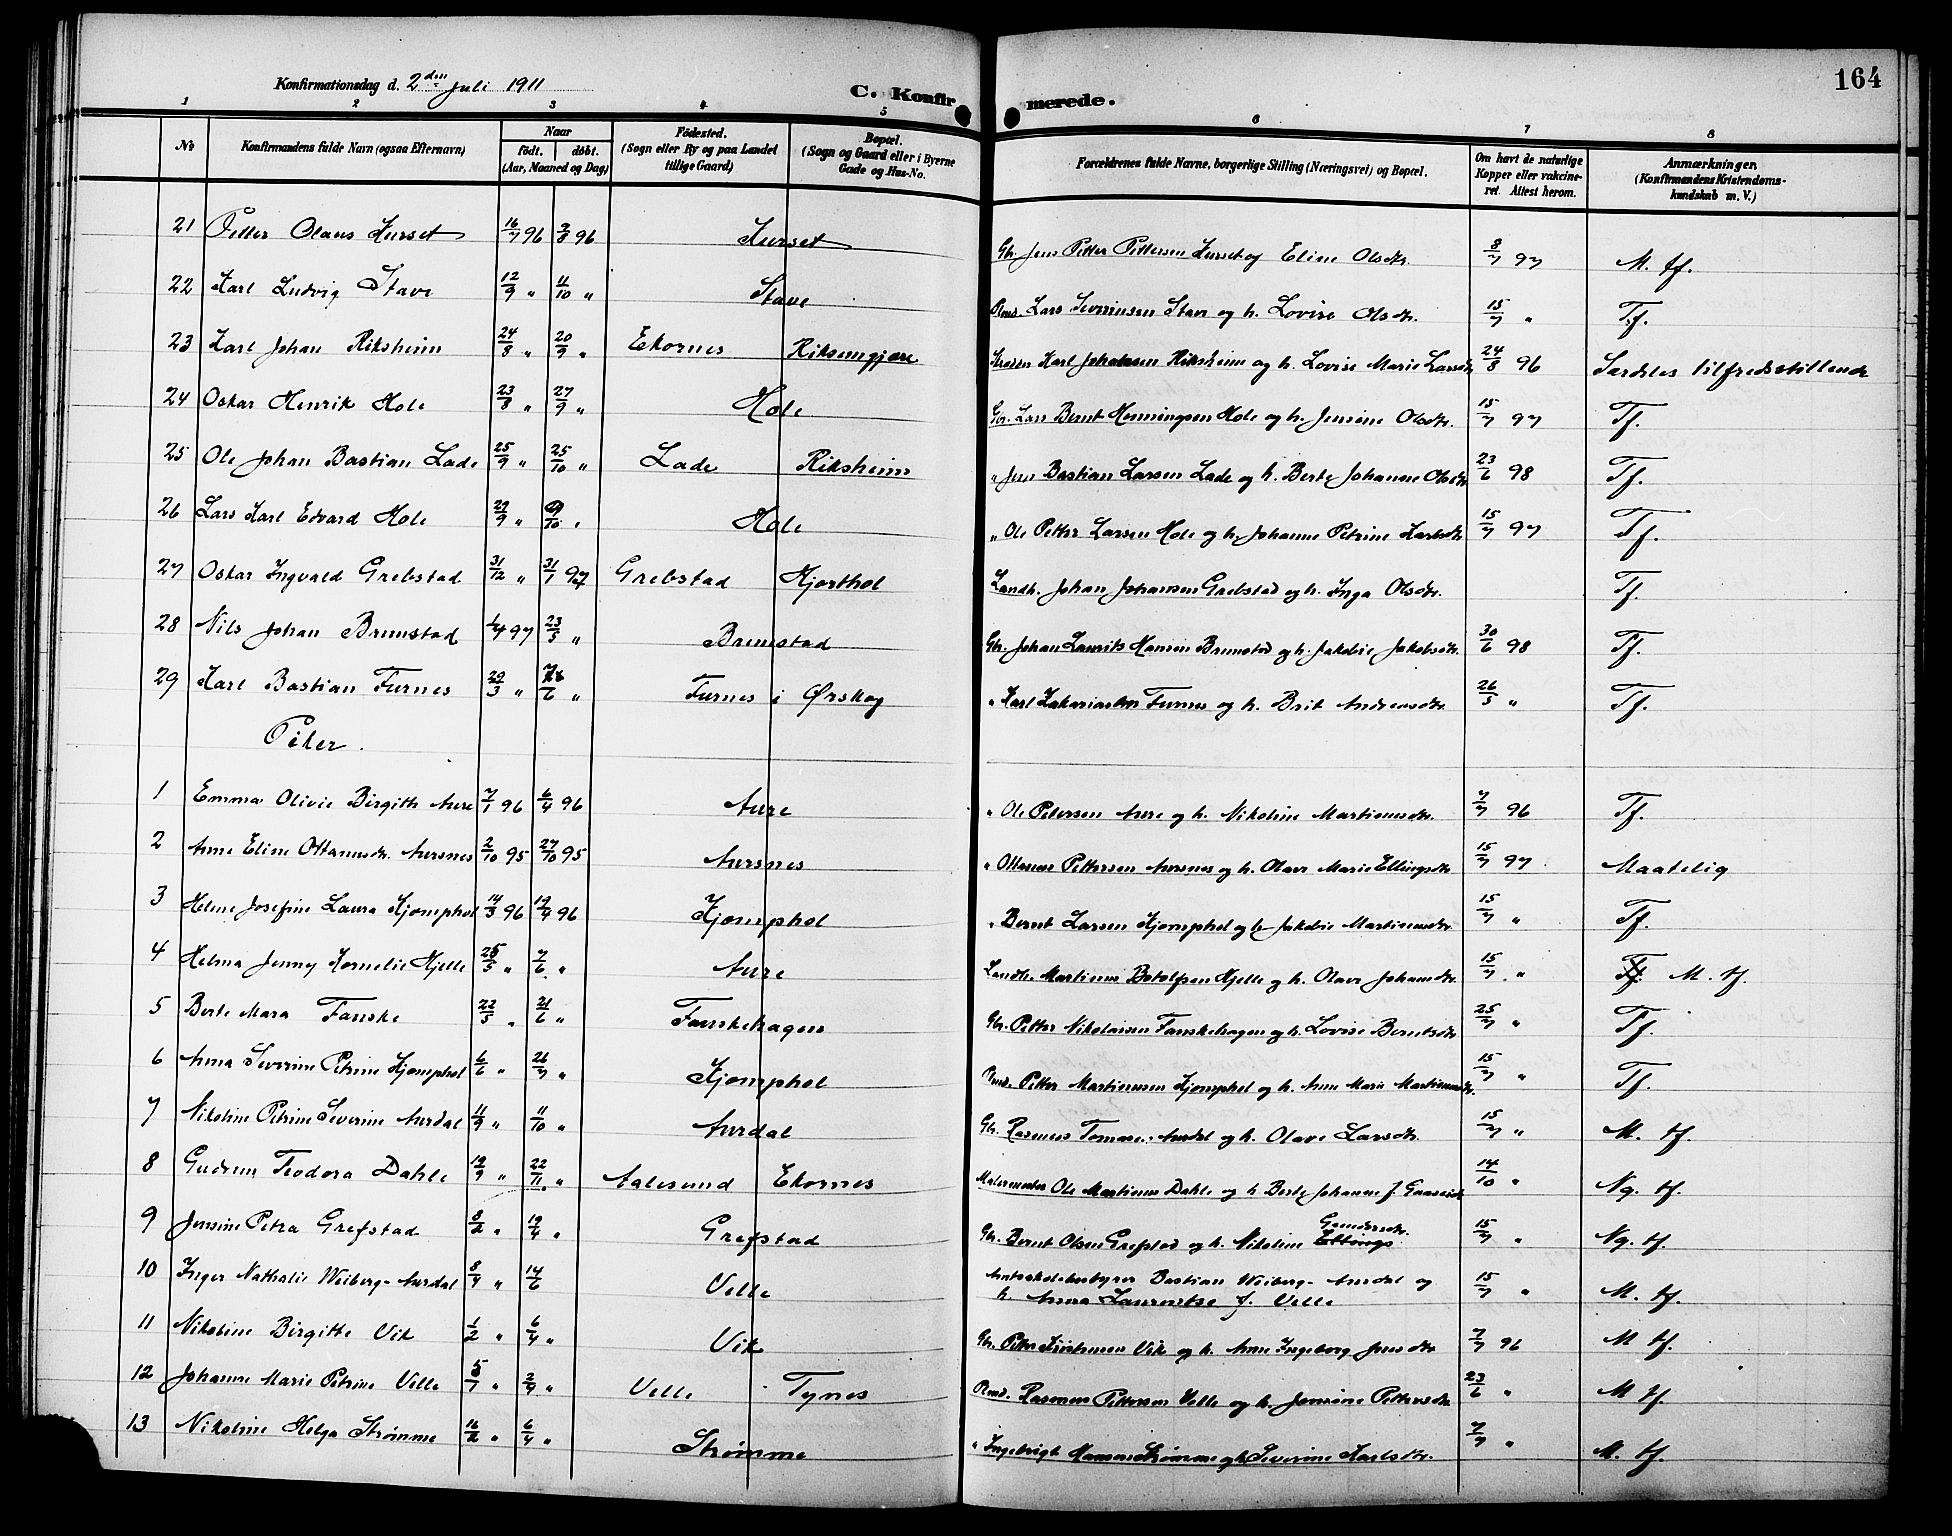 164
Konfirmationsdag d. 2den Juli 1911
C. Konfirmerede.
1 2 3 4 5 6 7 8
No Konfirmandens fulde Navn (ogsaa Efternavn) Naar født. døbt. (Aar, Maaned og Dag) Fødested. (Sogn eller By og paa Landet tillige Gaard) Bopæl. (Sogn og Gaard eller i Byerne Gade og Hus-No. Forældrenes fulde Navne, borgerlige Stilling (Næringsvei) og Bopæl. Om havt de naturlige Kopper eller vaccineret. Attest herom. Anmærkninger. (Konfirmandens Kristendomskundskab m. V.)
21 Petter Olaus Kurset 16/7 96 2/8 96 Kurset Gbr. Jens Petter Pettersen Kurset og Eline Olsdtr. 8/7 97 M. tf.
22 Karl Ludvig Stave 12/9 " 4/10 " Stave Lars Severinsen Stave og h. Lovise Olsdtr. 15/7 " Tf.
23 Karl Johan Riksheim 24/8 " 20/9 " Ekornes Riksemgjære Karl Johansen Riksheim og h. Lovise Marie Larsdtr 24/8 96 Særdeles tilfredsstillende
24 Oskar Henrik Hole 23/8 " 27/9 " Hole Gbr. Lars Bernt Henningsen Hole og h. Jensine Olsdtr. 15/7 97 Tf.
25 Ole Johan Bastian Lade 25/9 " 25/10 " Lade Riksheim " Jens Bastian Larsen Lade og h. Berte Johanne Olsdtr 23/6 98 Tf.
26 Lars Karl Edvard Hole 27/9 " /10 " Hole " Ole Petter Larsen Hole og h. Johanne Petrine Karlsdtr 15/7 97 Tf.
27 Oskar Ingvald Grebstad 31/12 " 31/1 97 Grebstad Hjorthol Landh. Johan Johansen Grebstad og h. Inga Olsdtr. Tf.
28 Nils Johan Brunstad 1/4 97 23/5 " Brunstad Gbr. Johan Laurits Hansen Brunstad og h. Jakobie Jakobsdtr. 30/6 98 Tf.
29 Karl Bastian Furnes 22/3 " /6 " Furnes i Ørskog " Karl Zakariassen Furnes og h. Brit Andreasdtr. 26/5 " Tf.
Piker.
1 Emma Olivie Birgitte Aure 7/1 96 6/4 96 Aure " Ole Petersen Aure og h. Nikoline Martinusdtr. 7/7 96 Tf.
2 Anne Eline Ottanusdtr. Aursnes 2/10 95 27/10 95 Aursnes " Ottanus Pettersen Aursnes og h. Olave Marie Ellingsdtr 15/7 97 Maatelig
3 Helene Josefine Laura Kjomphol 14/3 96 19/4 96 Kjomphol " Bernt Larsen Kjomphol og h. Jakobie Martinusdtr. 15/7 " Tf.
4 Helma Jenny Kornelie Hjelle 25/5 " 7/6 " Aure Landh. Martinus Botolfsen Hjelle og h. Olave Johansdtr. 15/7 " Tf. M. tf.
5 Berte Mara Fauske 22/5 " 21/6 " Fauskehagen Gbr. Petter Nikolaisen Fauskehagen og h. Lovise Berntsdtr. 25/7 " Tf.
6 Anna Severine Petrine Kjomphol 6/6 " 26/7 " Kjomphol Petter Martinussen Kjomphol og h. Anne Marie Martinusdtr. 15/7 " Tf.
7 Nikoline Petrine Severine Aurdal 11/9 " 11/10 " Aurdal Gbr. Rasmus Tomas. Aurdal og h. Olave Larsdtr. 15/7 " M. tf.
8 Gudrun Teodora Dahle 19/9 " 22/11 " Aalesund Ekornes Malermester Ole Martinus Dahle og h Berte Johanne f. Gaaseid 14/10 " Ng. tf.
9 Jensine Petra Grefstad 8/2 " 19/4 " Grefstad Gbr. Bernt Olsen Grefstad og h. Nikoline Ellings Gundersdtr. 15/7 " Ng. tf.
10 Inger Nathalie Weiberg-Aurdal 8/4 " 14/6 Velle Amtsskolebestyrer Bastian Weiberg-Aurdal og h. Anna Laurentse f. Velle 15/7 " M. tf.
11 Nikoline Birgitte Vik 1/2 " 6/4 " Vik Gbr. Petter Kristensen Vik og h. Anne Ingeborg Jensdtr 7/7 96 M tf.
12 Johanne Marie Petrine Velle 5/7 " 2/9 " Velle Tynes Rasmus Pettersen Velle og h. Jensine Pettersdtr 23/6 " M tf.
13 Nikoline Helga Strømme 16/2 " 6/4 " Strømme " Ingebrigt Hansen Strømme og h. Severine Karlsdtr. 7/7 " M. tf.